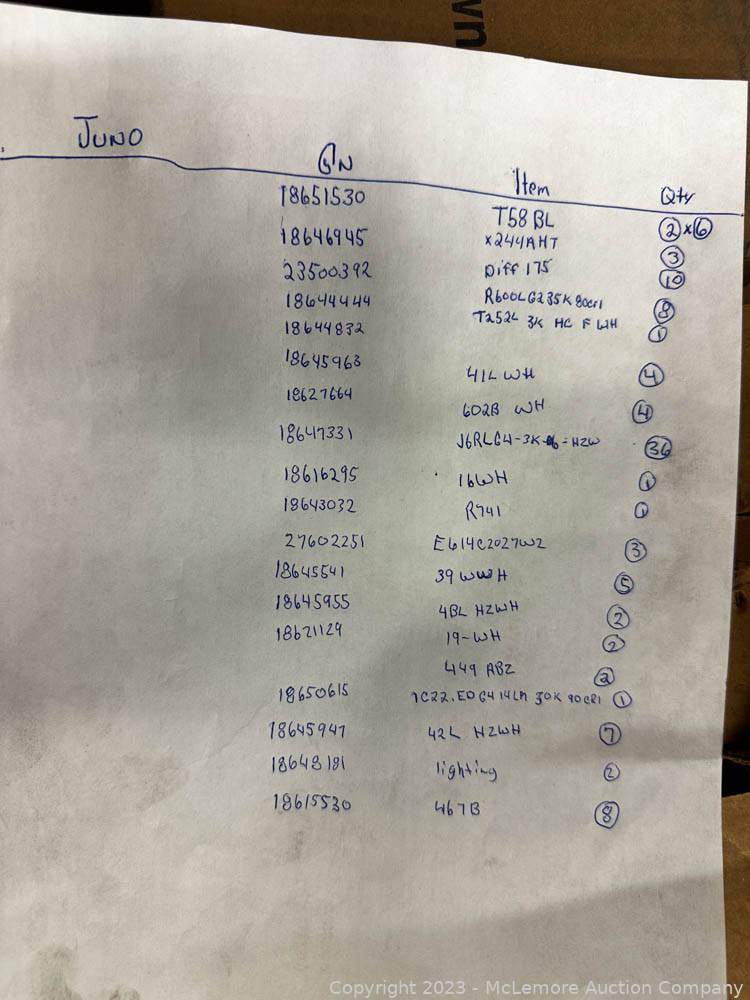 wn
JUNO
GN Item Qty
18651530 T58 BL 2 x 6
18646945 x244AHT 3
23500392 Diff 175 10
18644444 R600LG235K 80CRI 8
18644832 T252L 3K HC F WH 1
18645963 41L WH 4
18627664 602B WH 4
18647331 J6RLG4-3K-6-HZW 36
18616295 16WH 1
18643032 R741 1
27602251 E614C2027W2 3
18645541 39 WWH 5
18645955 4BL HZWH 2
18621129 19-WH 2
449 ABZ 2
18650615 1C22.EDG4 14LM 30K 90CRI 1
18645947 42L HZWH 7
18648181 lighting 2
18615530 467B 8
Copyright 2023 - McLemore Auction Company